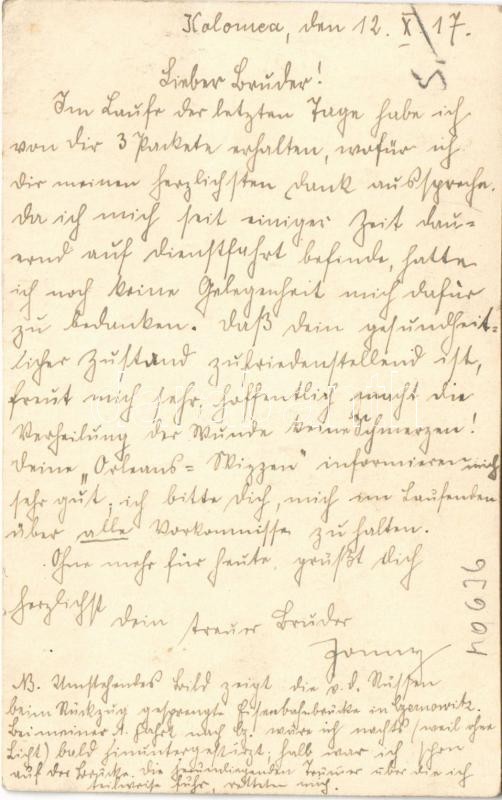 Kolomea, den 12. X. 17.
Lieber Bruder!
Im Laufe der letzten Tage habe ich
von dir 3 Packete erhalten, wofür ich
dir meinen herzlichsten Dank ausspreche.
Da ich mich seit einiger Zeit dau-
ernd auf Dienstfahrt befinde, hatte
ich noch keine Gelegenheit mich dafür
zu bedanken. Daß dein gesundheit=
licher Zustand zufriedenstellend ist,
freut mich sehr, hoffentlich macht die
Verheilung der Wunde keine Schmerzen!
Deine „Orleans=Skizzen" informieren mich
sehr gut; ich bitte Dich, mich im Laufenden
über alle Vorkommnisse zu halten.
Ohne mehr für heute, grüßt dich
herzlichst
dein treuer Bruder
Jonny
NB. Umstehendes Bild zeigt die v. d. Russen
beim Rückzug gesprengte Eisenbahnbrücke in Czernowitz.
Bei meiner A. Fahrt nach Cz. wäre ich nachts (weil ohne
Licht) bald hinuntergestürzt; halb war ich schon
auf der Brücke. Die Trümmer über die ich
teilweise fuhr, retteten mich.
40936